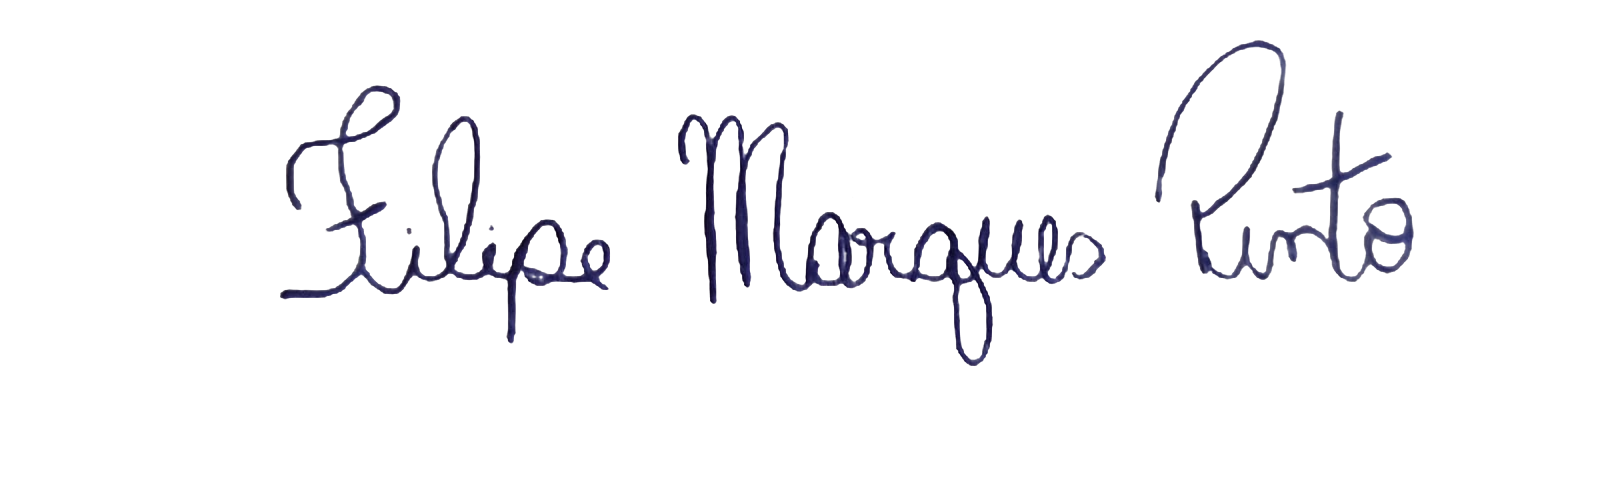 Filipe Marques Pinto